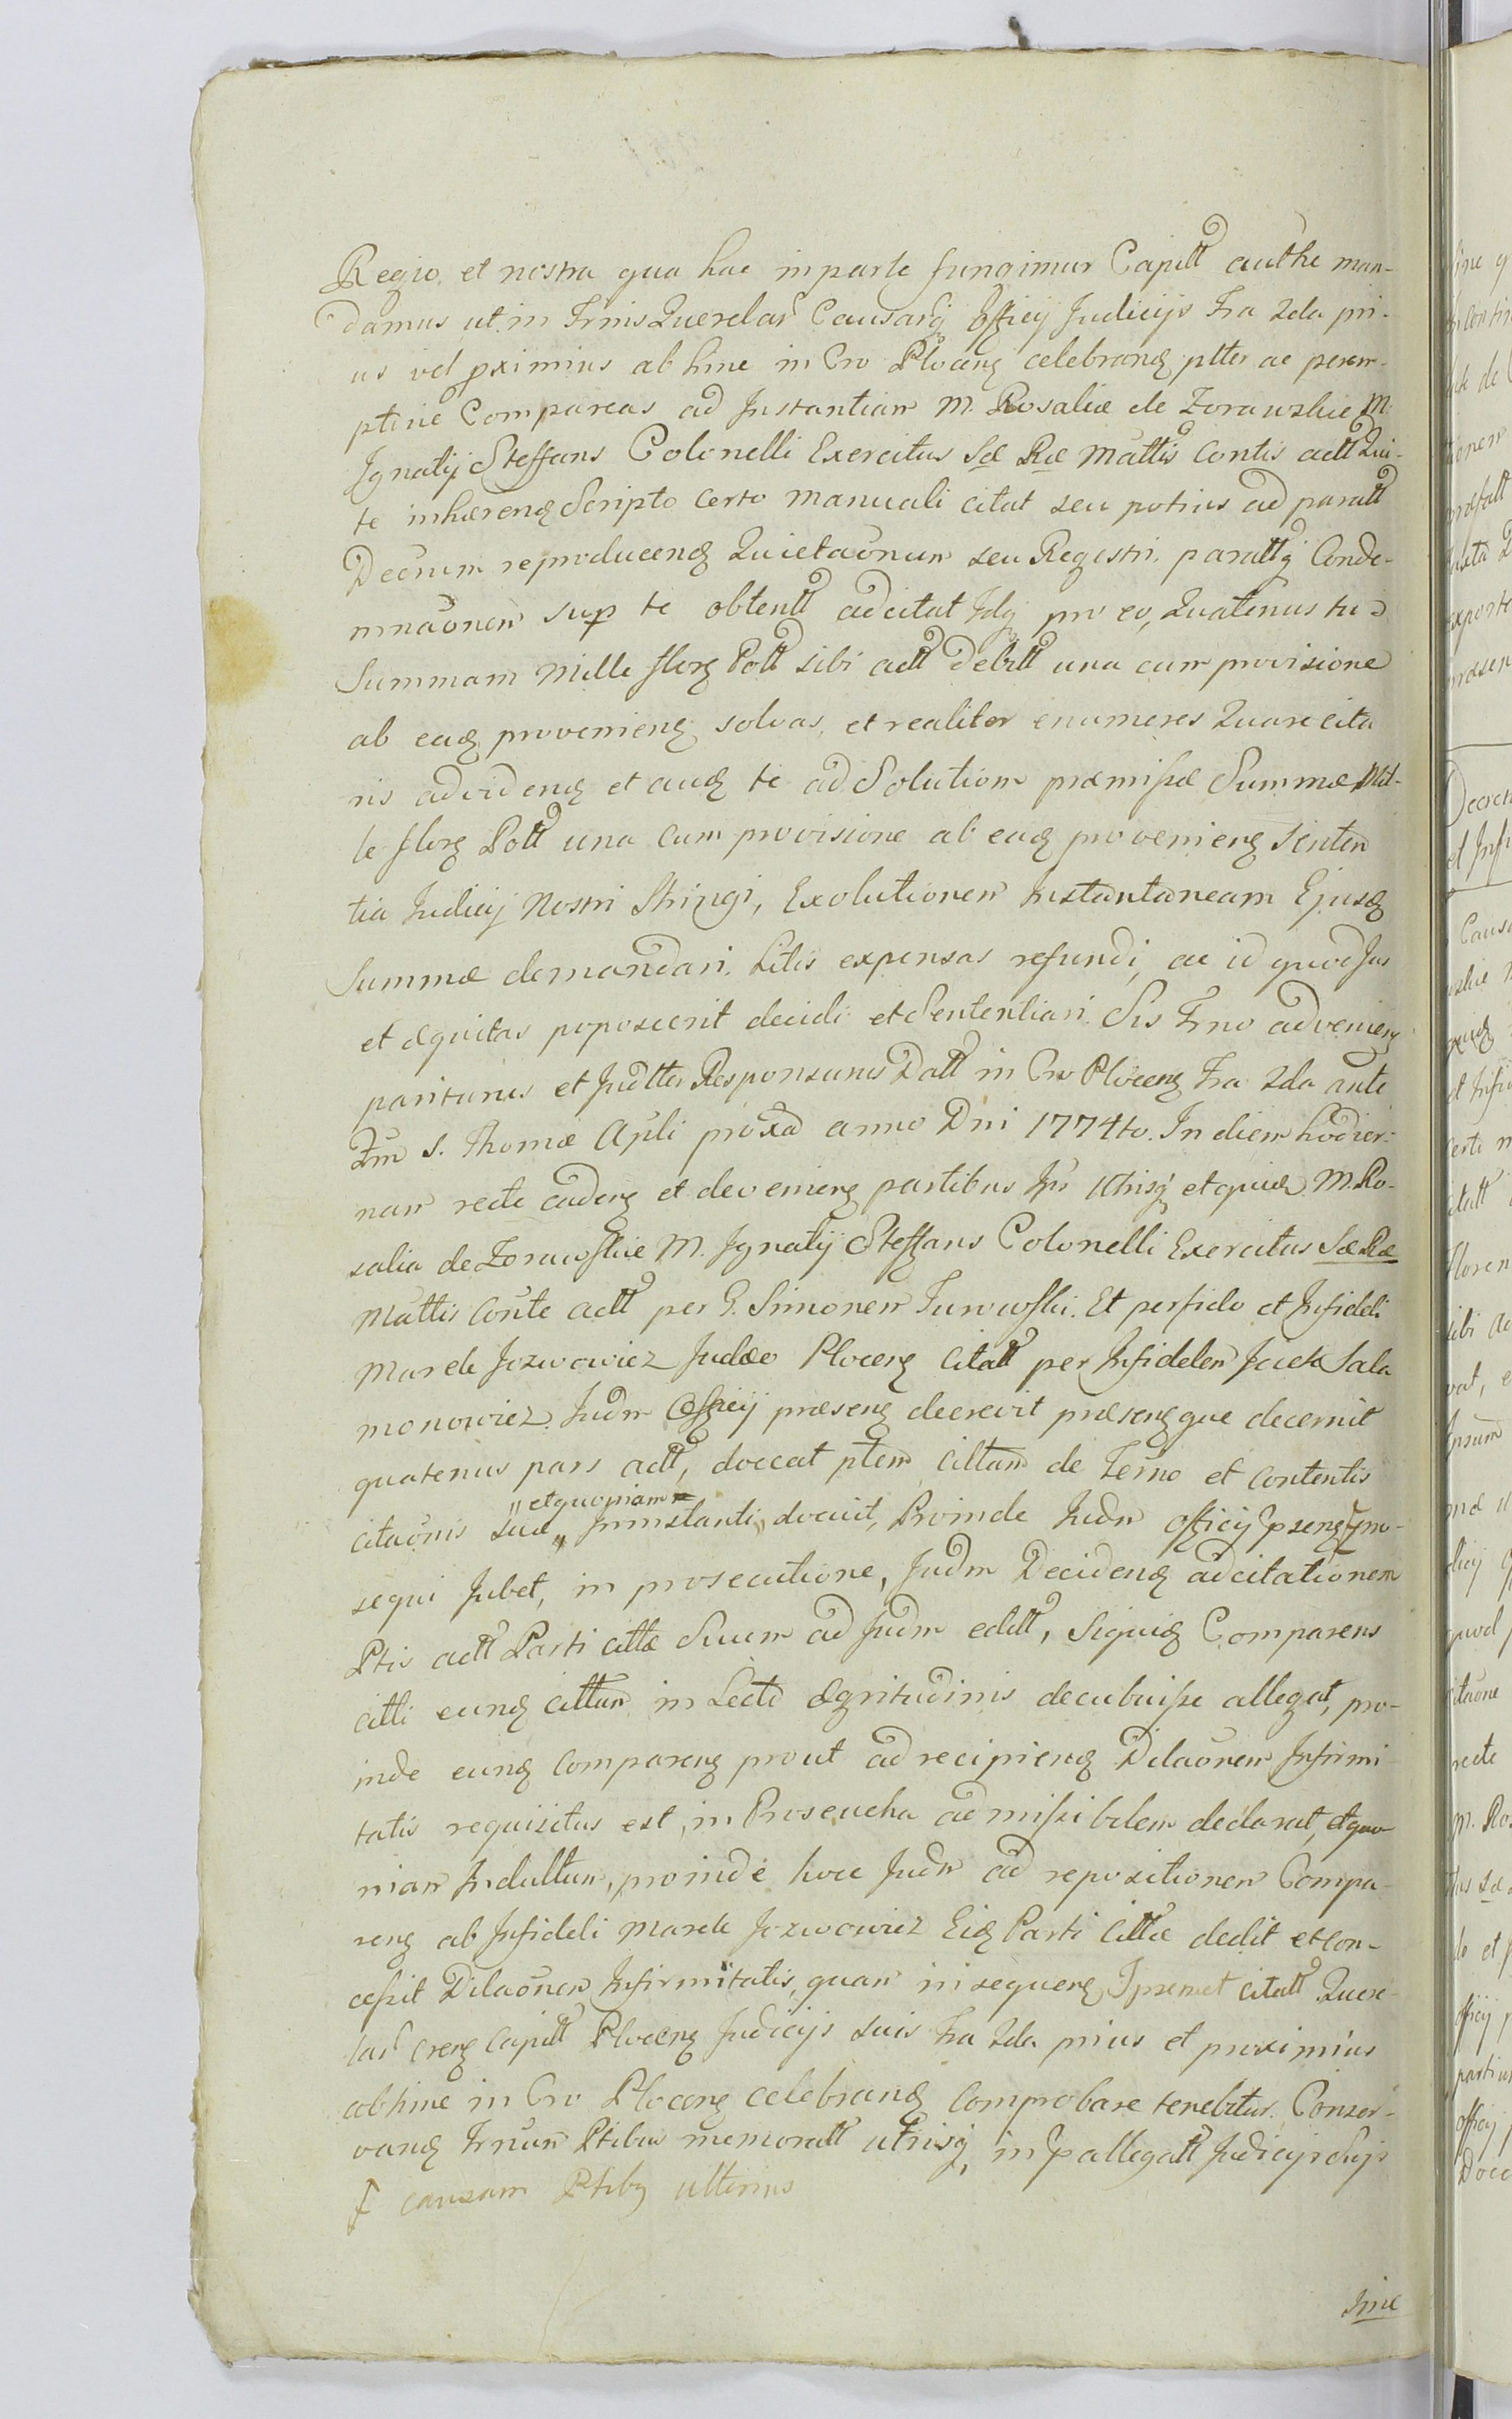 Regio, et nostra qua hac in parte fungimur Capitt authe man-
damus ut in Trnis Querelar Causarq Officij Judicijs Fra 2da pri-
us vel pximius ab hinc in Cro Plocen celebrand ptter ac perem-
ptine Compareas ad Instantiam M. Rosaliæ de Zorawskie M.
Ignatij Steffans Colonelli Exercitus Sæ Ræ Mattis Contis actt Qui
te inhæren Scripto certo manuali citat seu potius ad paratt
Decrum reproducend Quietaonum seu Regestri, parattq Conde-
mnaonem sup te obtentt adcitat Idq pro eo, Quatenus tu
Summam Mille flor Pott sibi actt debitt una cum provisione
ab ead provenien solvas, et realiter enumeres Quare cita
ris ad vidend et aud te ad Solutionem præmissæ Summæ Mil-
le flor Pott una cum provisione ab ead provenien senten
tia Judicij Nostri Stringi, Exolutionem Instantaneam Ejusd
Summæ demandari, Litis expensas refundi, ac id quod Jus
et æquitas poposcerit decidi et Sententiari. Sis Trno advenien
pariturus et Judtter Responsurus Datt in Cro Plocen Fra 2da ante
Fm S. Thomæ Apli proxa anno Dni 1774to. In diem hodier-
nam recte caden et devenien partibus Ips Utrisq et quid M. Ro-
salia de Zorawskie M. Ignatij Steffans Colonelli Exercitus Sæ Ræ
Mattis Conte actt per G. Simonem Turowski. Et perfido et Infideli
Marek Jozwowicz Judæo Plocen Citatt per Infidelem Jacek Sala
monowicz Judm Officij præsen decrevit præsenque decernit
quatenus pars actt, doceat ptem cittam de Terno et contentis
„et quoniam
citaonis suæ „ Ininstanti docuit, Proinde Judm officij psens Ꝉ pro-
sequi Jubet, in prosecutione, Judm Decidend adcitationem
Ptis actt Parti cittæ Suum ad Judm editt, Siquid Comparens
citti eund cittum in Lecto Ægritudinis decubuisse allegat, pro-
inde eund comparen prout ad recipiend Dilaonem Infirmi-
tatis requisitus est, in Proseucha admissibilem declarat, et quo
niam Indultum, proinde hocce Judm ad repositionem Compa-
ren ab Infideli Marek Jozwowicz Eid Parti Cittæ dedit et con-
cessit Dilaonem Infirmitatis, quam in sequen Ipsemet citatt Quere-
lar cren Capitt Plocen Judicijs suis Fra 2da prius et proximius
abhinc in Cro Plocen celebrand Comprobare tenebitur. Conser-
vand Trnum Ptibus memoratt utrisq, in pallegatt Judicijs Sujs
Ꝉ causam Ptiby ulterius
sine